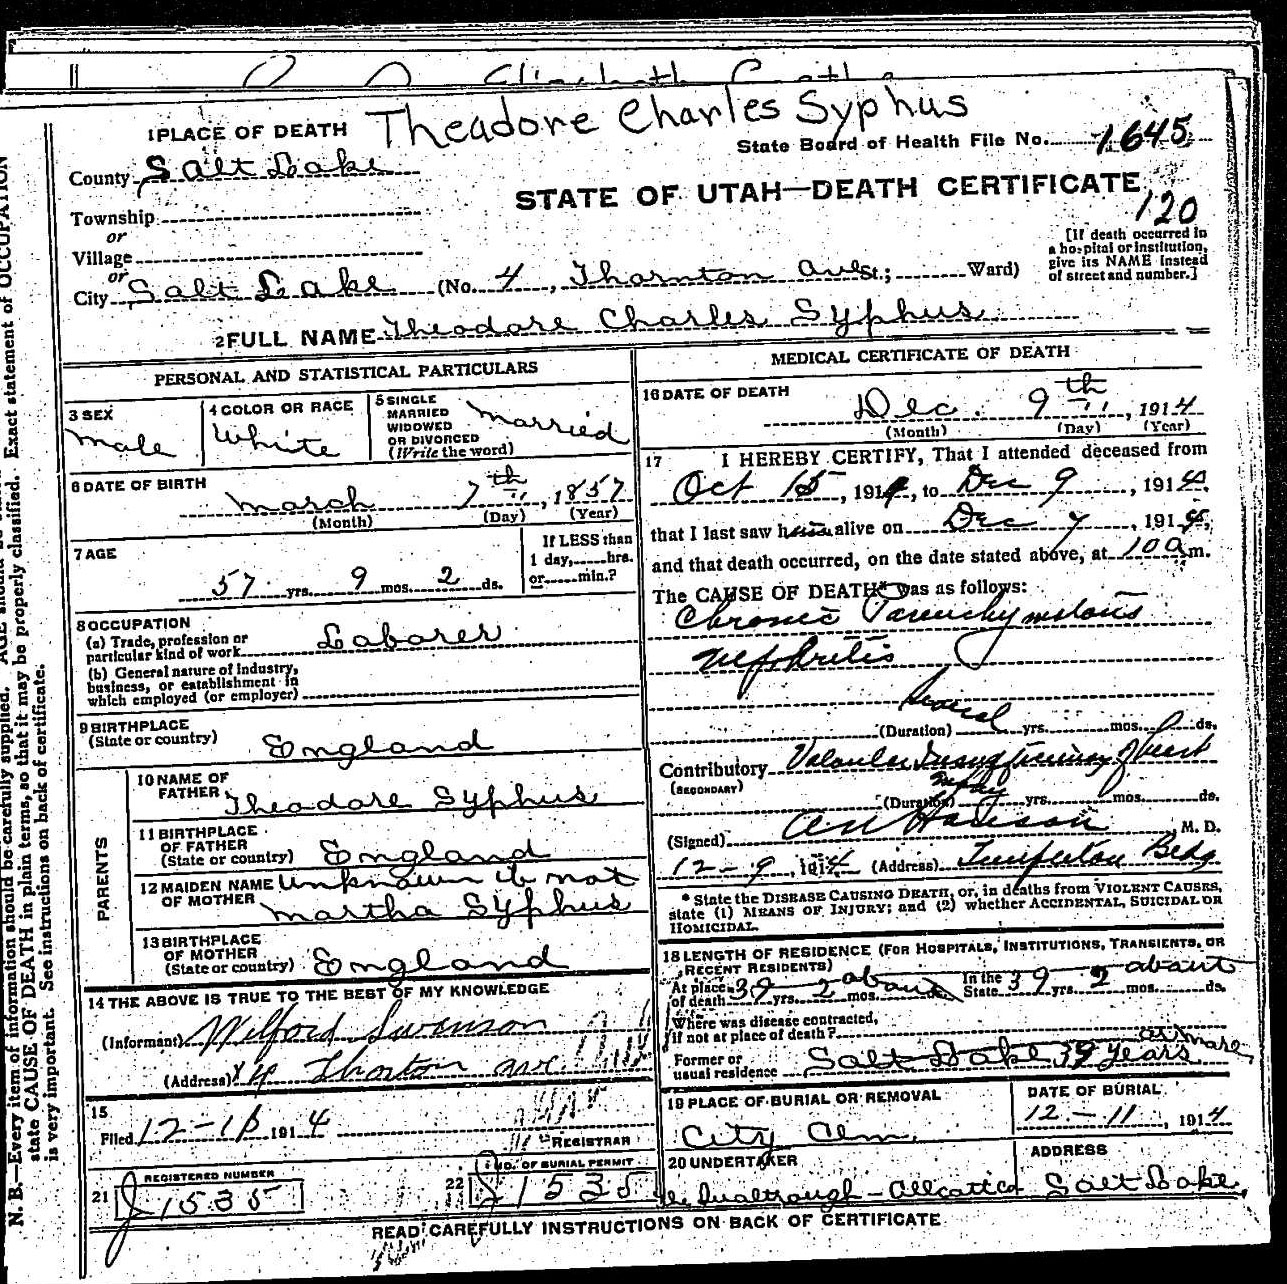 Theadore Charles Syphus
1 PLACE OF DEATH
State Board of Health File No. 1645
County Salt Lake
STATE OF UTAH—DEATH CERTIFICATE
120
Township
or
Village
or
City Salt Lake (No. 4, Thornton Ave St.; Ward)
[If death occurred in
a hospital or institution,
give its NAME instead
of street and number.]
2 FULL NAME Theodore Charles Syphus
PERSONAL AND STATISTICAL PARTICULARS
3 SEX
male
4 COLOR OR RACE
White
5 SINGLE
MARRIED
WIDOWED
OR DIVORCED
(Write the word)
married
6 DATE OF BIRTH
March 7th, 1857
(Month) (Day) (Year)
7 AGE
57 yrs. 9 mos. 2 ds.
If LESS than
1 day, hrs.
or min.?
8 OCCUPATION
(a) Trade, profession or
particular kind of work Laborer
(b) General nature of industry,
business, or establishment in
which employed (or employer)
9 BIRTHPLACE
(State or country) England
PARENTS
10 NAME OF
FATHER Theodore Syphus
11 BIRTHPLACE
OF FATHER
(State or country) England
12 MAIDEN NAME
OF MOTHER
unknown if not
martha Syphus
13 BIRTHPLACE
OF MOTHER
(State or country) England
14 THE ABOVE IS TRUE TO THE BEST OF MY KNOWLEDGE
(Informant) Wilford Swenson
(Address) # 4 Thornton ave.
15
Filed 12-1, 1914
REGISTRAR
21 REGISTERED NUMBER
J 1535
22 NO. OF BURIAL PERMIT
J 1535
MEDICAL CERTIFICATE OF DEATH
16 DATE OF DEATH
Dec. 9th, 1914
(Month) (Day) (Year)
17 I HEREBY CERTIFY, That I attended deceased from
Oct 15, 1914, to Dec 9, 1914,
that I last saw him alive on Dec 7, 1914,
and that death occurred, on the date stated above, at 10 a m.
The CAUSE OF DEATH* was as follows:
Chronic Parenchymatous
Nephritis
(Duration) Several yrs. mos. ds.
Contributory Valvular Insufficiency of heart
(SECONDARY)
(Duration) Many yrs. mos. ds.
(Signed) M. D.
12-9, 1914 (Address) Templeton Bldg
* State the DISEASE CAUSING DEATH, or, in deaths from VIOLENT CAUSES,
state (1) MEANS OF INJURY; and (2) whether ACCIDENTAL, SUICIDAL OR
HOMICIDAL.
18 LENGTH OF RESIDENCE (FOR HOSPITALS, INSTITUTIONS, TRANSIENTS, OR
RECENT RESIDENTS)
At place of death 39 yrs. 2 mos. about ds. In the State 39 yrs. 2 mos. about ds.
Where was disease contracted,
if not at place of death?
Former or
usual residence Salt Lake 39 years or more
19 PLACE OF BURIAL OR REMOVAL
City Cem.
DATE OF BURIAL
12-11, 1914
20 UNDERTAKER
ADDRESS
Salt Lake
READ CAREFULLY INSTRUCTIONS ON BACK OF CERTIFICATE
N. B.—Every item of information should be carefully supplied. AGE should be
state CAUSE OF DEATH in plain terms, so that it may be properly classified. Exact statement of OCCUPATION
is very important. See instructions on back of certificate.